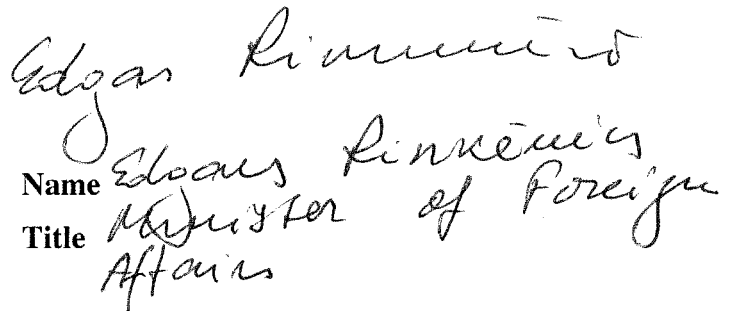 Edgars Rinkēvičs
Name Edgars Rinkēvičs
Title Minister of Foreign
Affairs